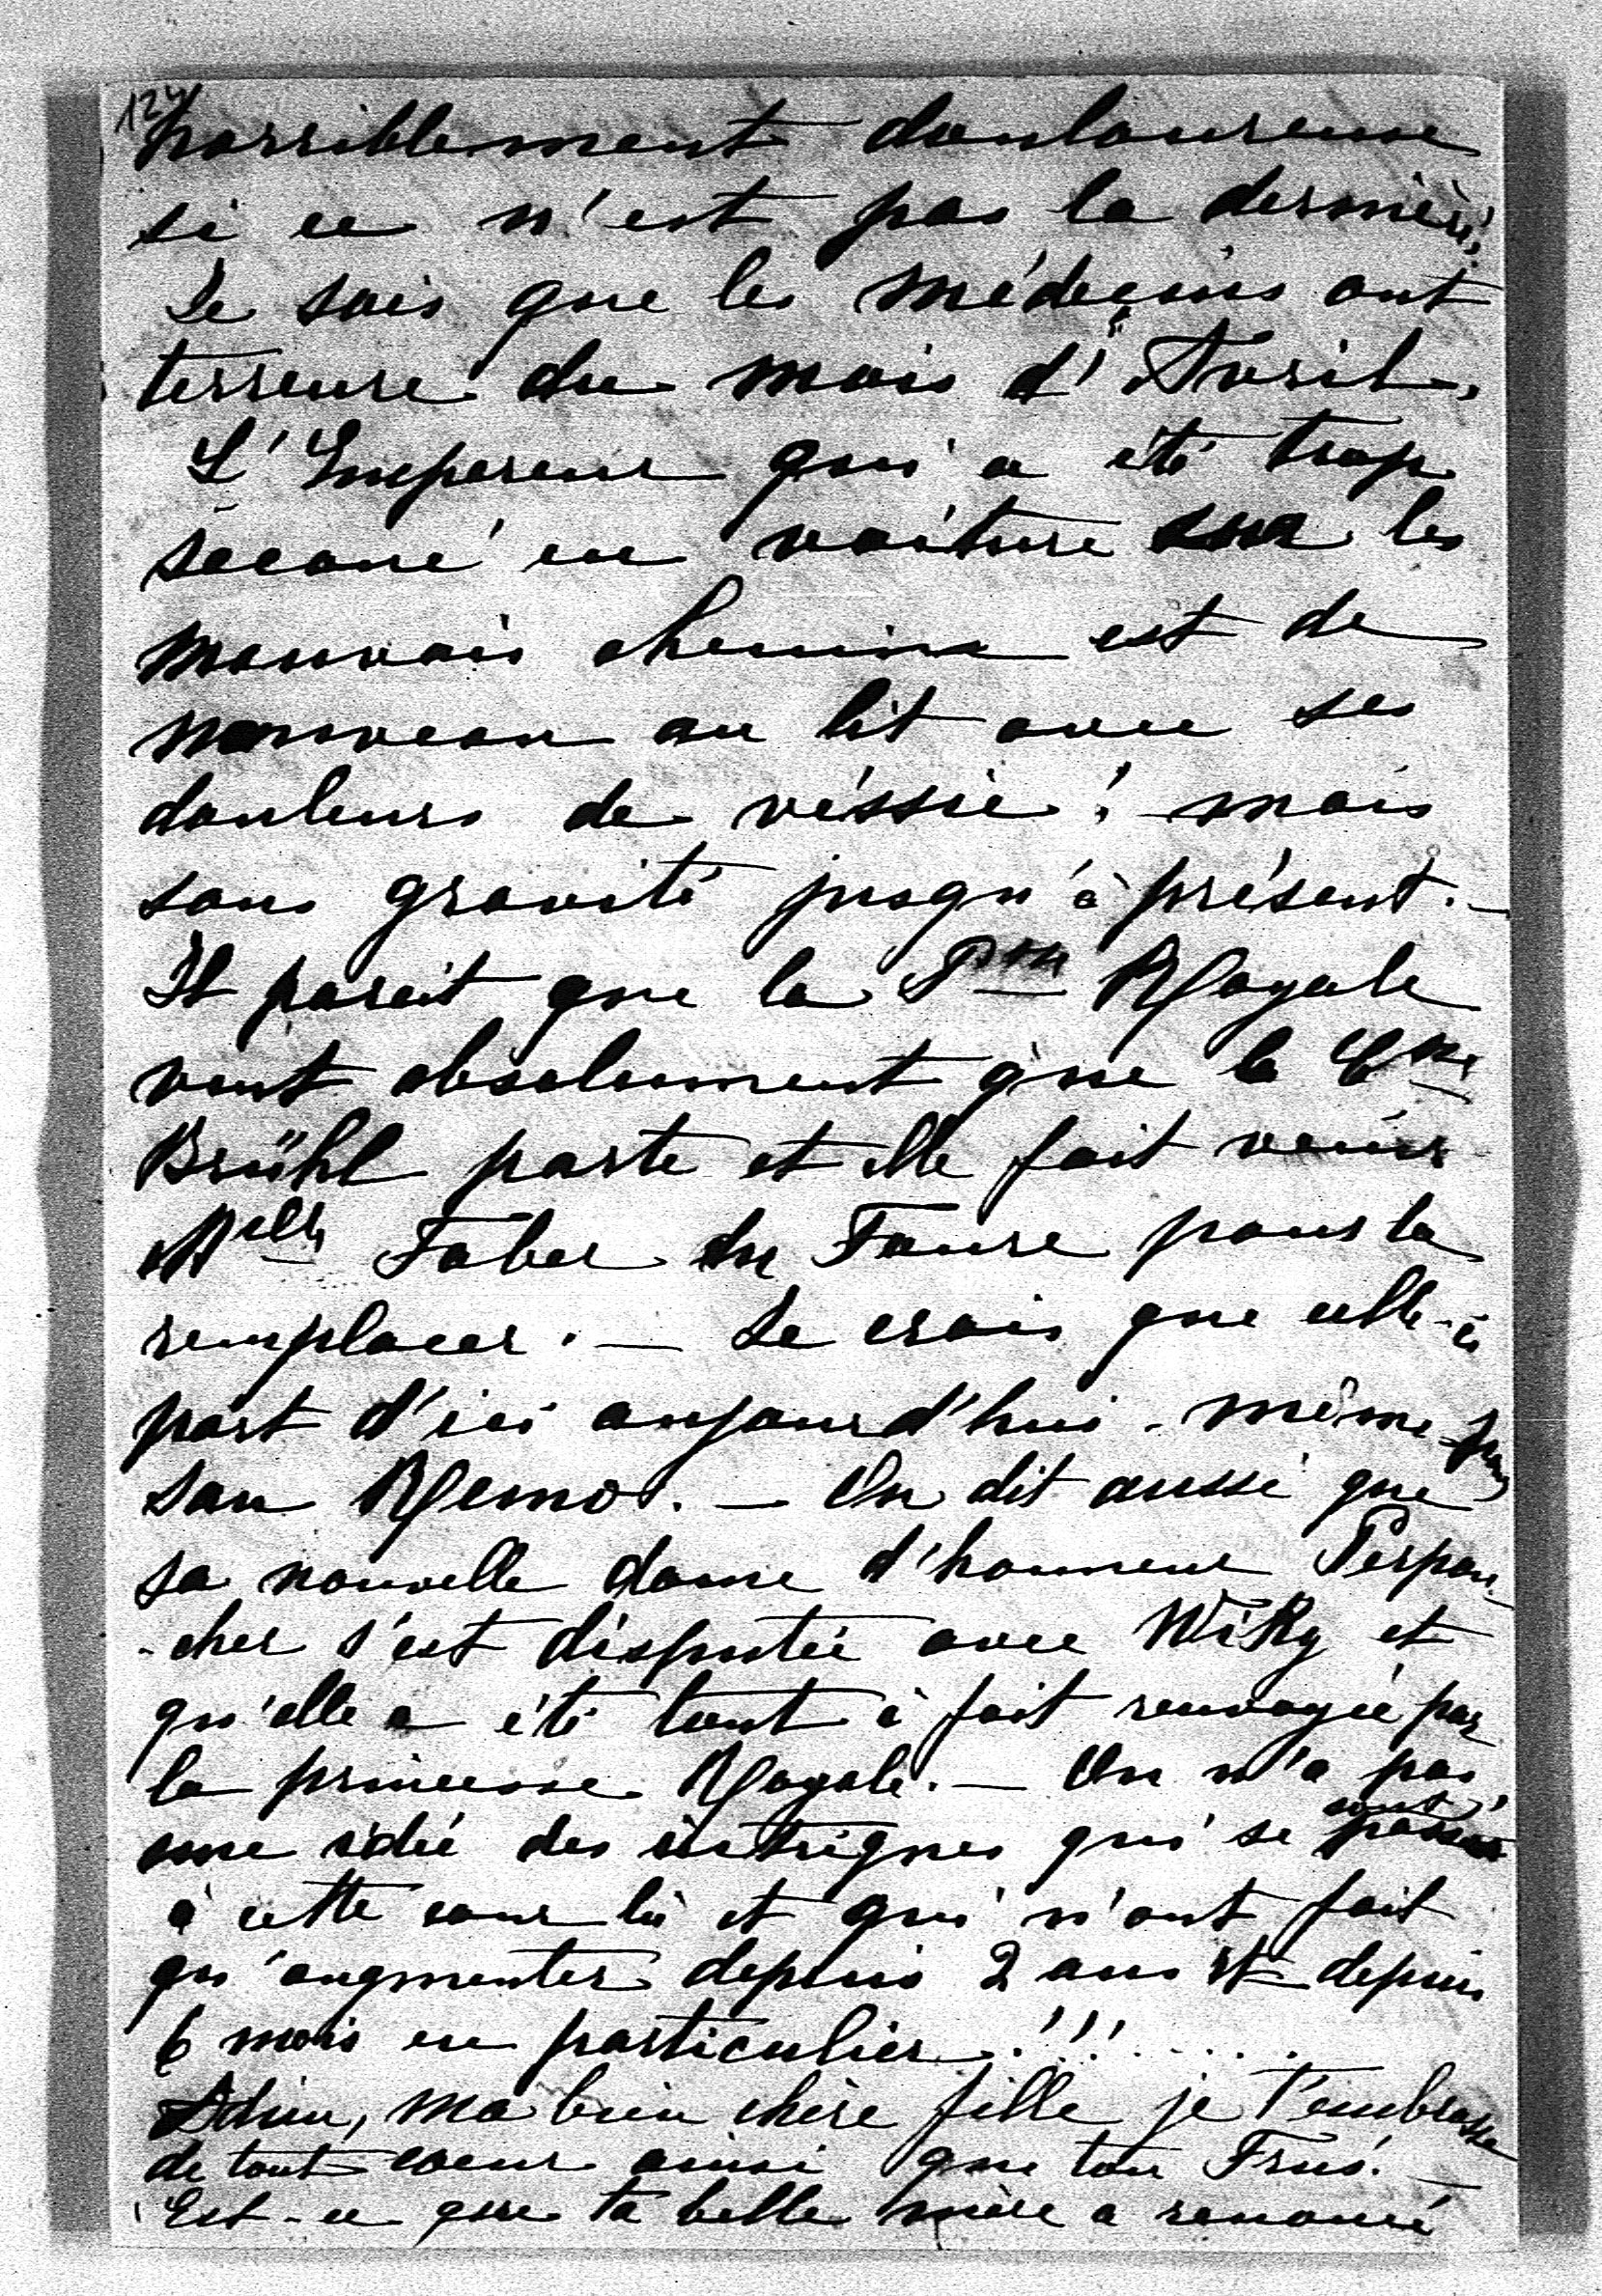 124
horriblement douloureuse
si ce n'est pas la dernière.
Je sais que les médeçins ont
terreure du mois d'Avril,
L'Empereur qui a été trop
secoué en voiture sur les
mauvais chemins est de
nouveau au lit avec ses
douleurs de véssie! mais
sans gravité jusqu'à présent. —
Il parait que la Psse Royale
veut absolument que la Csse
Brühl parte et elle fait venir
Melle Faber du Faure pour la
remplacer. — Je crois que celle-ci
part d'ici aujourd'hui-même pour
San Remo. — On dit aussi que
sa nouvelle dame d'honneur Perpon-
-cher s'est disputée avec Willy et
qu'elle a été tout à fait renvoyée par
la princesse Royale. — On n'a pas
une idée des intrigues qui se sont passées
à cette cour là et qui n'ont fait
qu'augmenter depuis 2 ans et depuis
6 mois en particulier!!!.....
Adieu, ma bien chère fille je t'embrasse
de tout coeur ainsi que ton —
Est-ce que ta belle mère a renoncé